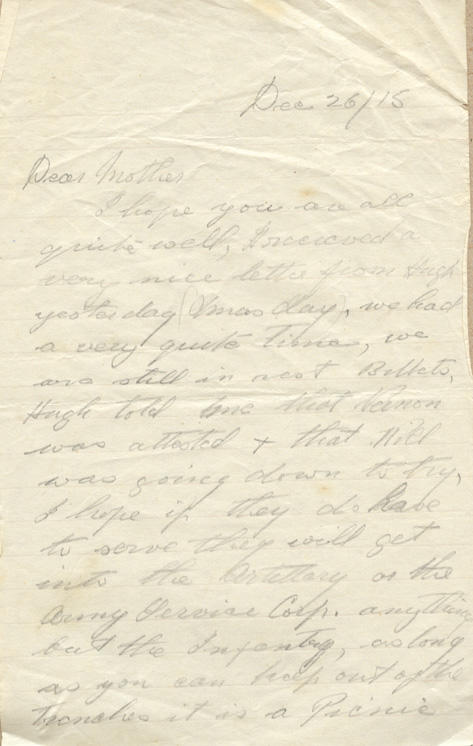 Dec 26/15
Dear Mother
I hope you are all
quite well, I received a
very nice letter from Hugh
yesterday (Xmas day), we had
a very quite time, we
are still in rest Billets,
Hugh told me that Vernon
was attested + that Will
was going down to try,
I hope if they do have
to serve they will get
into the Artillary or the
Army Service Corp. anything
but the Infantry, as long
as you can keep out of the
trenches it is a Picnic